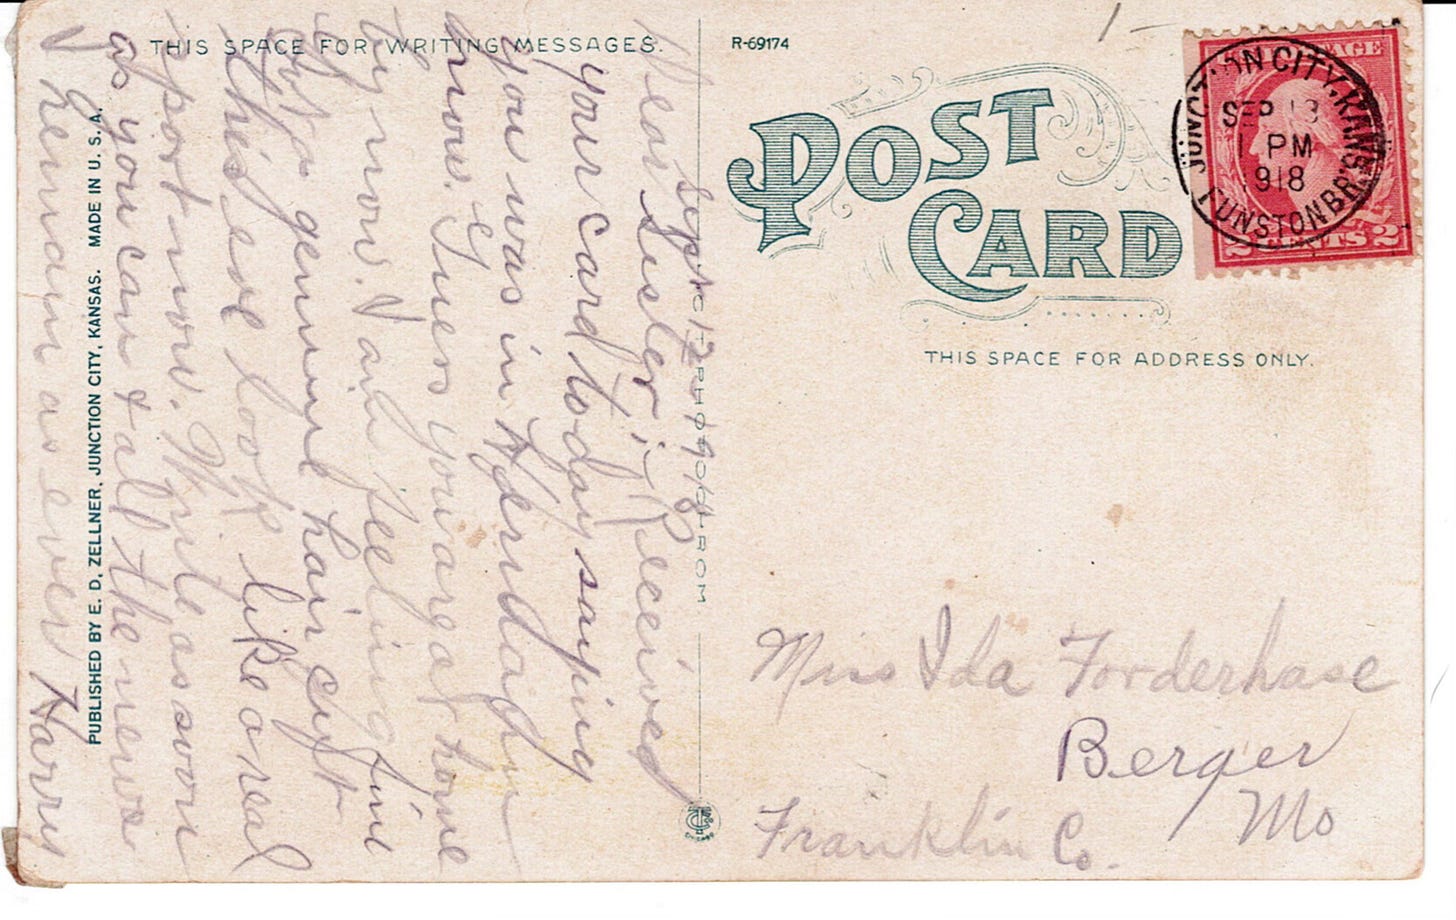 THIS SPACE FOR WRITING MESSAGES.
Sept 12 1918
Dear Sister: Received
your card today saying
you was in
Guess you are at home
by now. I am feeling fine
Got a genuine hair cut
this eve look like a real
sport now. Write as soon
as you can & all the news
I remain as ever Harry
PUBLISHED BY E. D. ZELLNER, JUNCTION CITY, KANSAS. MADE IN U. S. A.
R-69174
POST
CARD
THIS SPACE FOR ADDRESS ONLY.
JUNCTION CITY, KANS.
SEP 13
1 PM
1918
FUNSTON BR.
2 CENTS 2
Miss Ida Forderhase
Berger
Mo
Franklin Co.